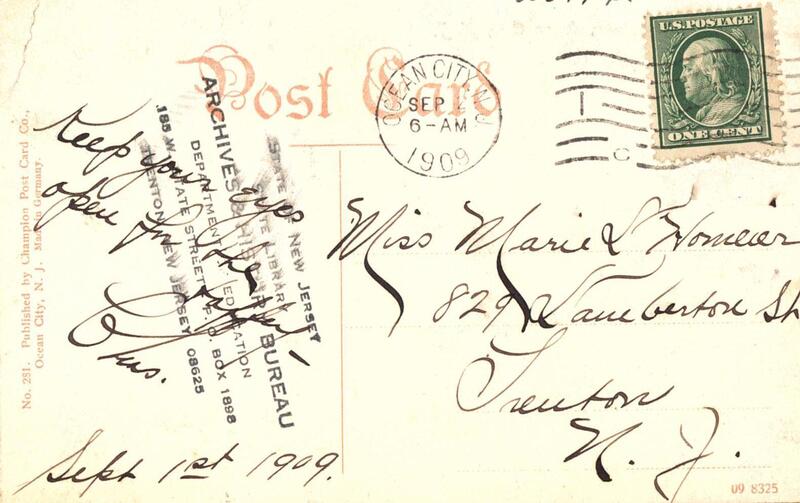 Post Card
OCEAN CITY N.J.
SEP 2
6-AM
1909
U.S.POSTAGE
ONE CENT
Keep your eyes
open for the
Chas.
Sept 1st 1909.
Miss Marie L Homeier
829 Lamberton St
Trenton
N. J.
STATE OF NEW JERSEY
STATE LIBRARY
ARCHIVES & HISTORY BUREAU
DEPARTMENT OF EDUCATION
185 W. STATE STREET, P.O. BOX 1898
TRENTON, NEW JERSEY 08625
No. 281. Published by Champion Post Card Co.,
Ocean City, N. J. Made in Germany.
09 8325